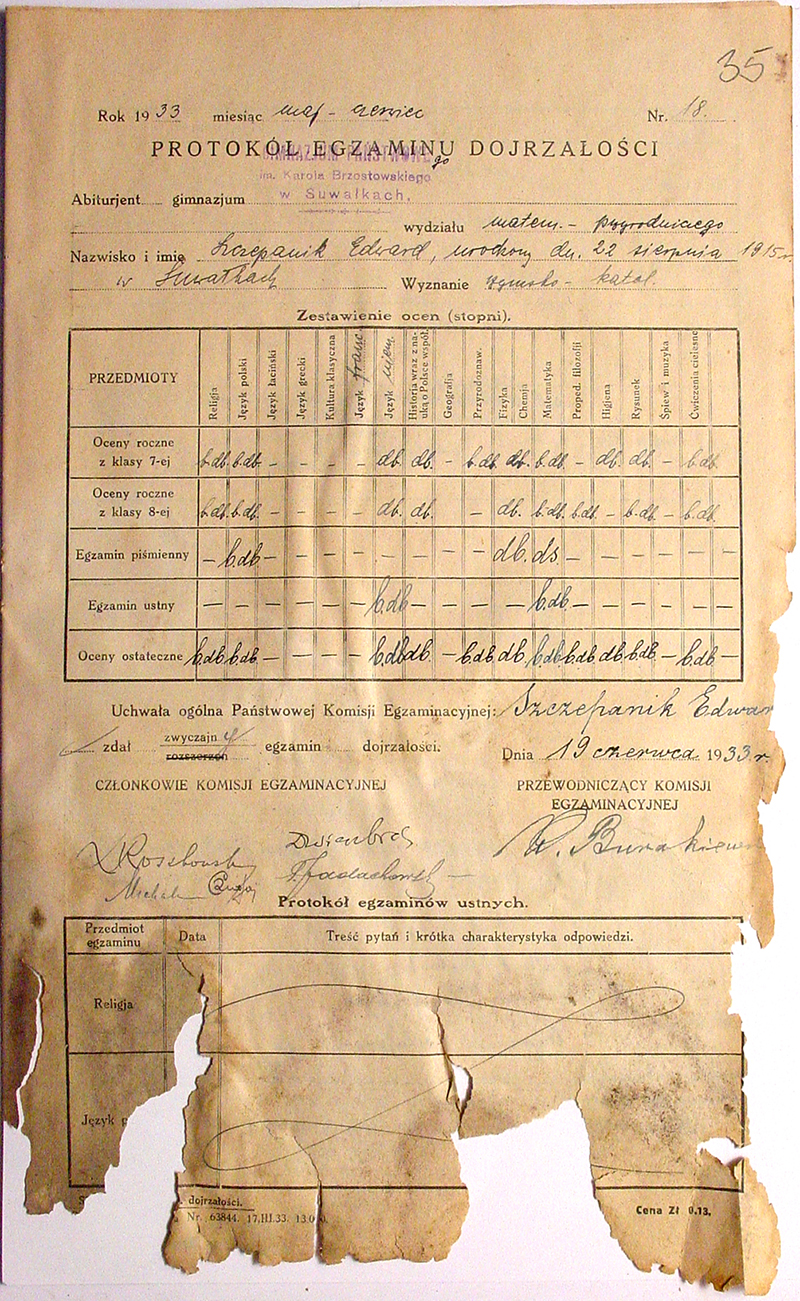 35
Rok 1933 miesiąc maj - czerwiec Nr. 18.
PROTOKÓŁ EGZAMINU DOJRZAŁOŚCI
GIMNAZJUM PAŃSTWOWE
im. Karola Brzostowskiego
w Suwałkach,
Abiturjent gimnazjum go
wydziału matem. - przyrodniczego
Nazwisko i imię Szczepanik Edward, urodzony dn. 22 sierpnia 1915 r.
w Suwałkach Wyznanie rzymsko - katol.
Zestawienie ocen (stopni).
PRZEDMIOTY Religja Język polski Język łaciński Język grecki Kultura klasyczna Język franc. Język niem. Historia wraz z nauką o Polsce współ. Geografja Przyrodoznaw. Fizyka Chemja Matematyka Proped. filozofji Higjena Rysunek Śpiew i muzyka Ćwiczenia cielesne
Oceny roczne z klasy 7-ej b.db. b.db. - - - - db. db. - b.db. db. b.db. - db. db. - b.db.
Oceny roczne z klasy 8-ej b.db. b.db. - - - - db. db. - db. b.db. b.db. - b.db. - b.db.
Egzamin piśmienny - b.db - - - - - - - - db. ds - - - - - -
Egzamin ustny - - - - - - b.db - - - - b.db. - - - - - -
Oceny ostateczne b.db. b.db. - - - - b.db db. - b.db. db. b.db b.db. db. b.db. - b.db. -
Uchwała ogólna Państwowej Komisji Egzaminacyjnej: Szczepanik Edwar
zdał zwyczajny egzamin dojrzałości.
rozszerzon
Dnia 19 czerwca 1933 r.
CZŁONKOWIE KOMISJI EGZAMINACYJNEJ
PRZEWODNICZĄCY KOMISJI
EGZAMINACYJNEJ
Protokół egzaminów ustnych.
Przedmiot egzaminu Data Treść pytań i krótka charakterystyka odpowiedzi.
Religja
Język
dojrzałości.
Nr. 63844. 17.III.33.
Cena Zł 0.13.